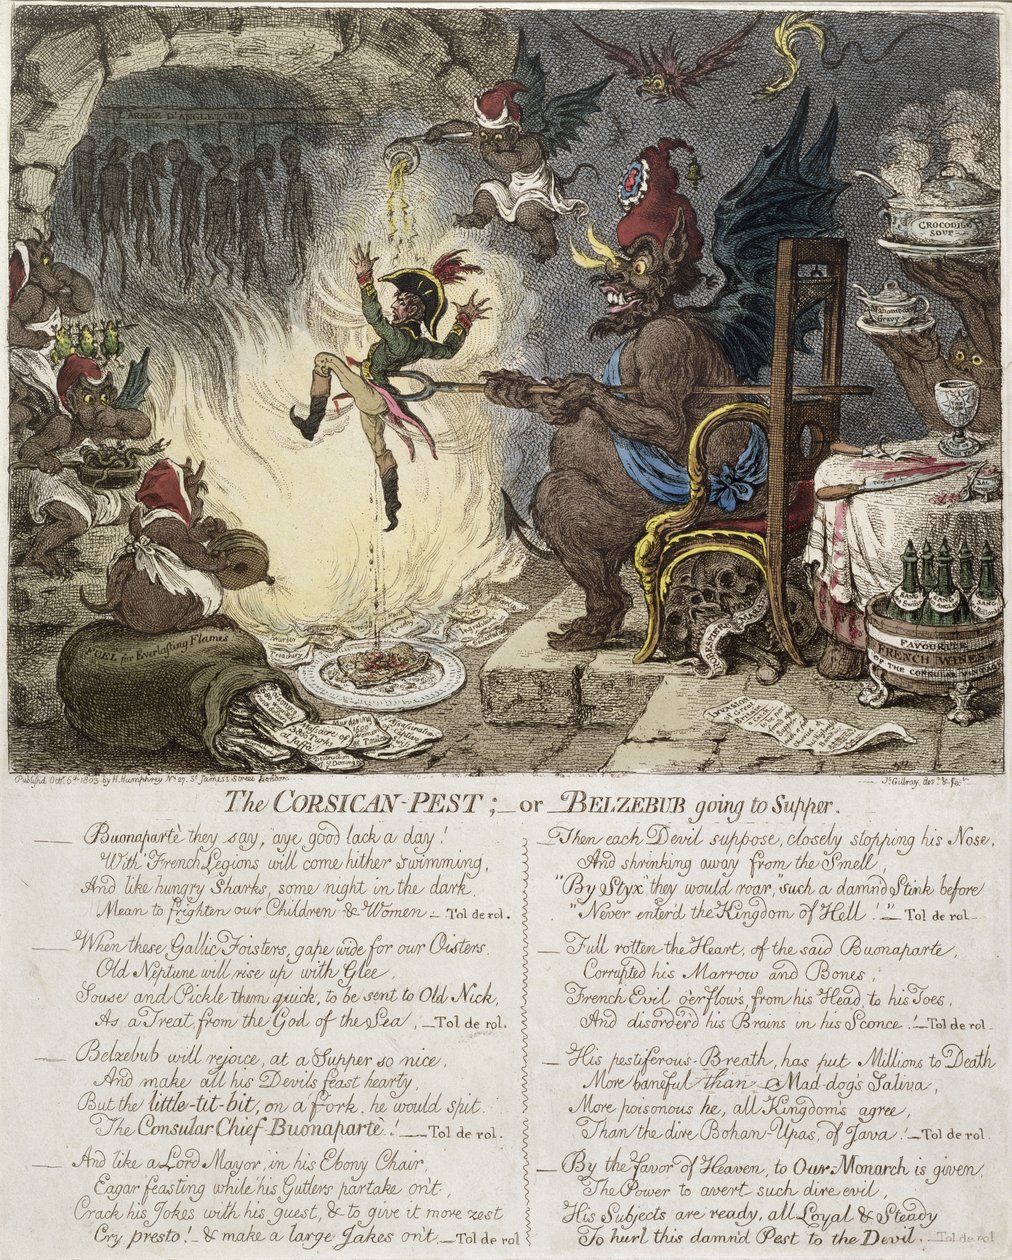 L'ARMÉE D'ANGLETERRE
CROCODILE
SOUP
Mahometan
Gravy
FUEL for Everlasting Flames
Massacre
of 1500
at Toulon
FAVOURITE
FRENCH WINES
OF THE CONSULAR VINTAGE
SANG
SANG
SANG
Publishd Octr. 6th 1803 by H. Humphrey No. 27. St. James's Street London
Js. Gillray, des: & fec:
The CORSICAN-PEST;—or BELZEBUB going to Supper.
— Buonapartè they say, aye good lack a day!
With French Legions will come hither swimming,
And like hungry Sharks, some night in the dark,
Mean to frighten our Children & Women — Tol de rol.
— When these Gallic Foisters, gape wide for our Oisters,
Old Neptune will rise up with Glee,
Souse and Pickle them quick, to be sent to Old Nick,
As a Treat, from the God of the Sea, — Tol de rol.
— Belzebub will rejoice, at a Supper so nice,
And make all his Devils feast hearty,
But the little-tit-bit, on a fork, he would spit.
The Consular-Chief-Buonapartè! — Tol de rol.
— And like a Lord Mayor, in his Ebony Chair,
Eagar feasting while his Gutlers partake on't,
Crack his Jokes with his guest, & to give it more zest
Cry, presto! & make a large Jakes on't, — Tol de rol
— Then each Devil suppose, closely stopping his Nose,
And shrinking away from the Smell,
"By Styx" they would roar, "such a damn'd Stink before
"Never enter'd the Kingdom of Hell!" — Tol de rol —
— Full rotten the Heart, of the said Buonaparte,
Corrupted his Marrow and Bones,
French Evil o'erflows, from his Head, to his Toes,
And disorder'd his Brains in his Sconce! — Tol de rol —
— His pestiferous-Breath, has put Millions to Death
More baneful than a Mad-dog's Saliva,
More poisonous he, all Kingdoms agree,
Than the dire Bohan-Upas, of Java! — Tol de rol.
— By the favor of Heaven, to Our Monarch is given,
The Power to avert such dire evil,
His Subjects are ready, all Loyal & Steady
To hurl this damn'd Pest to the Devil. — Tol de rol